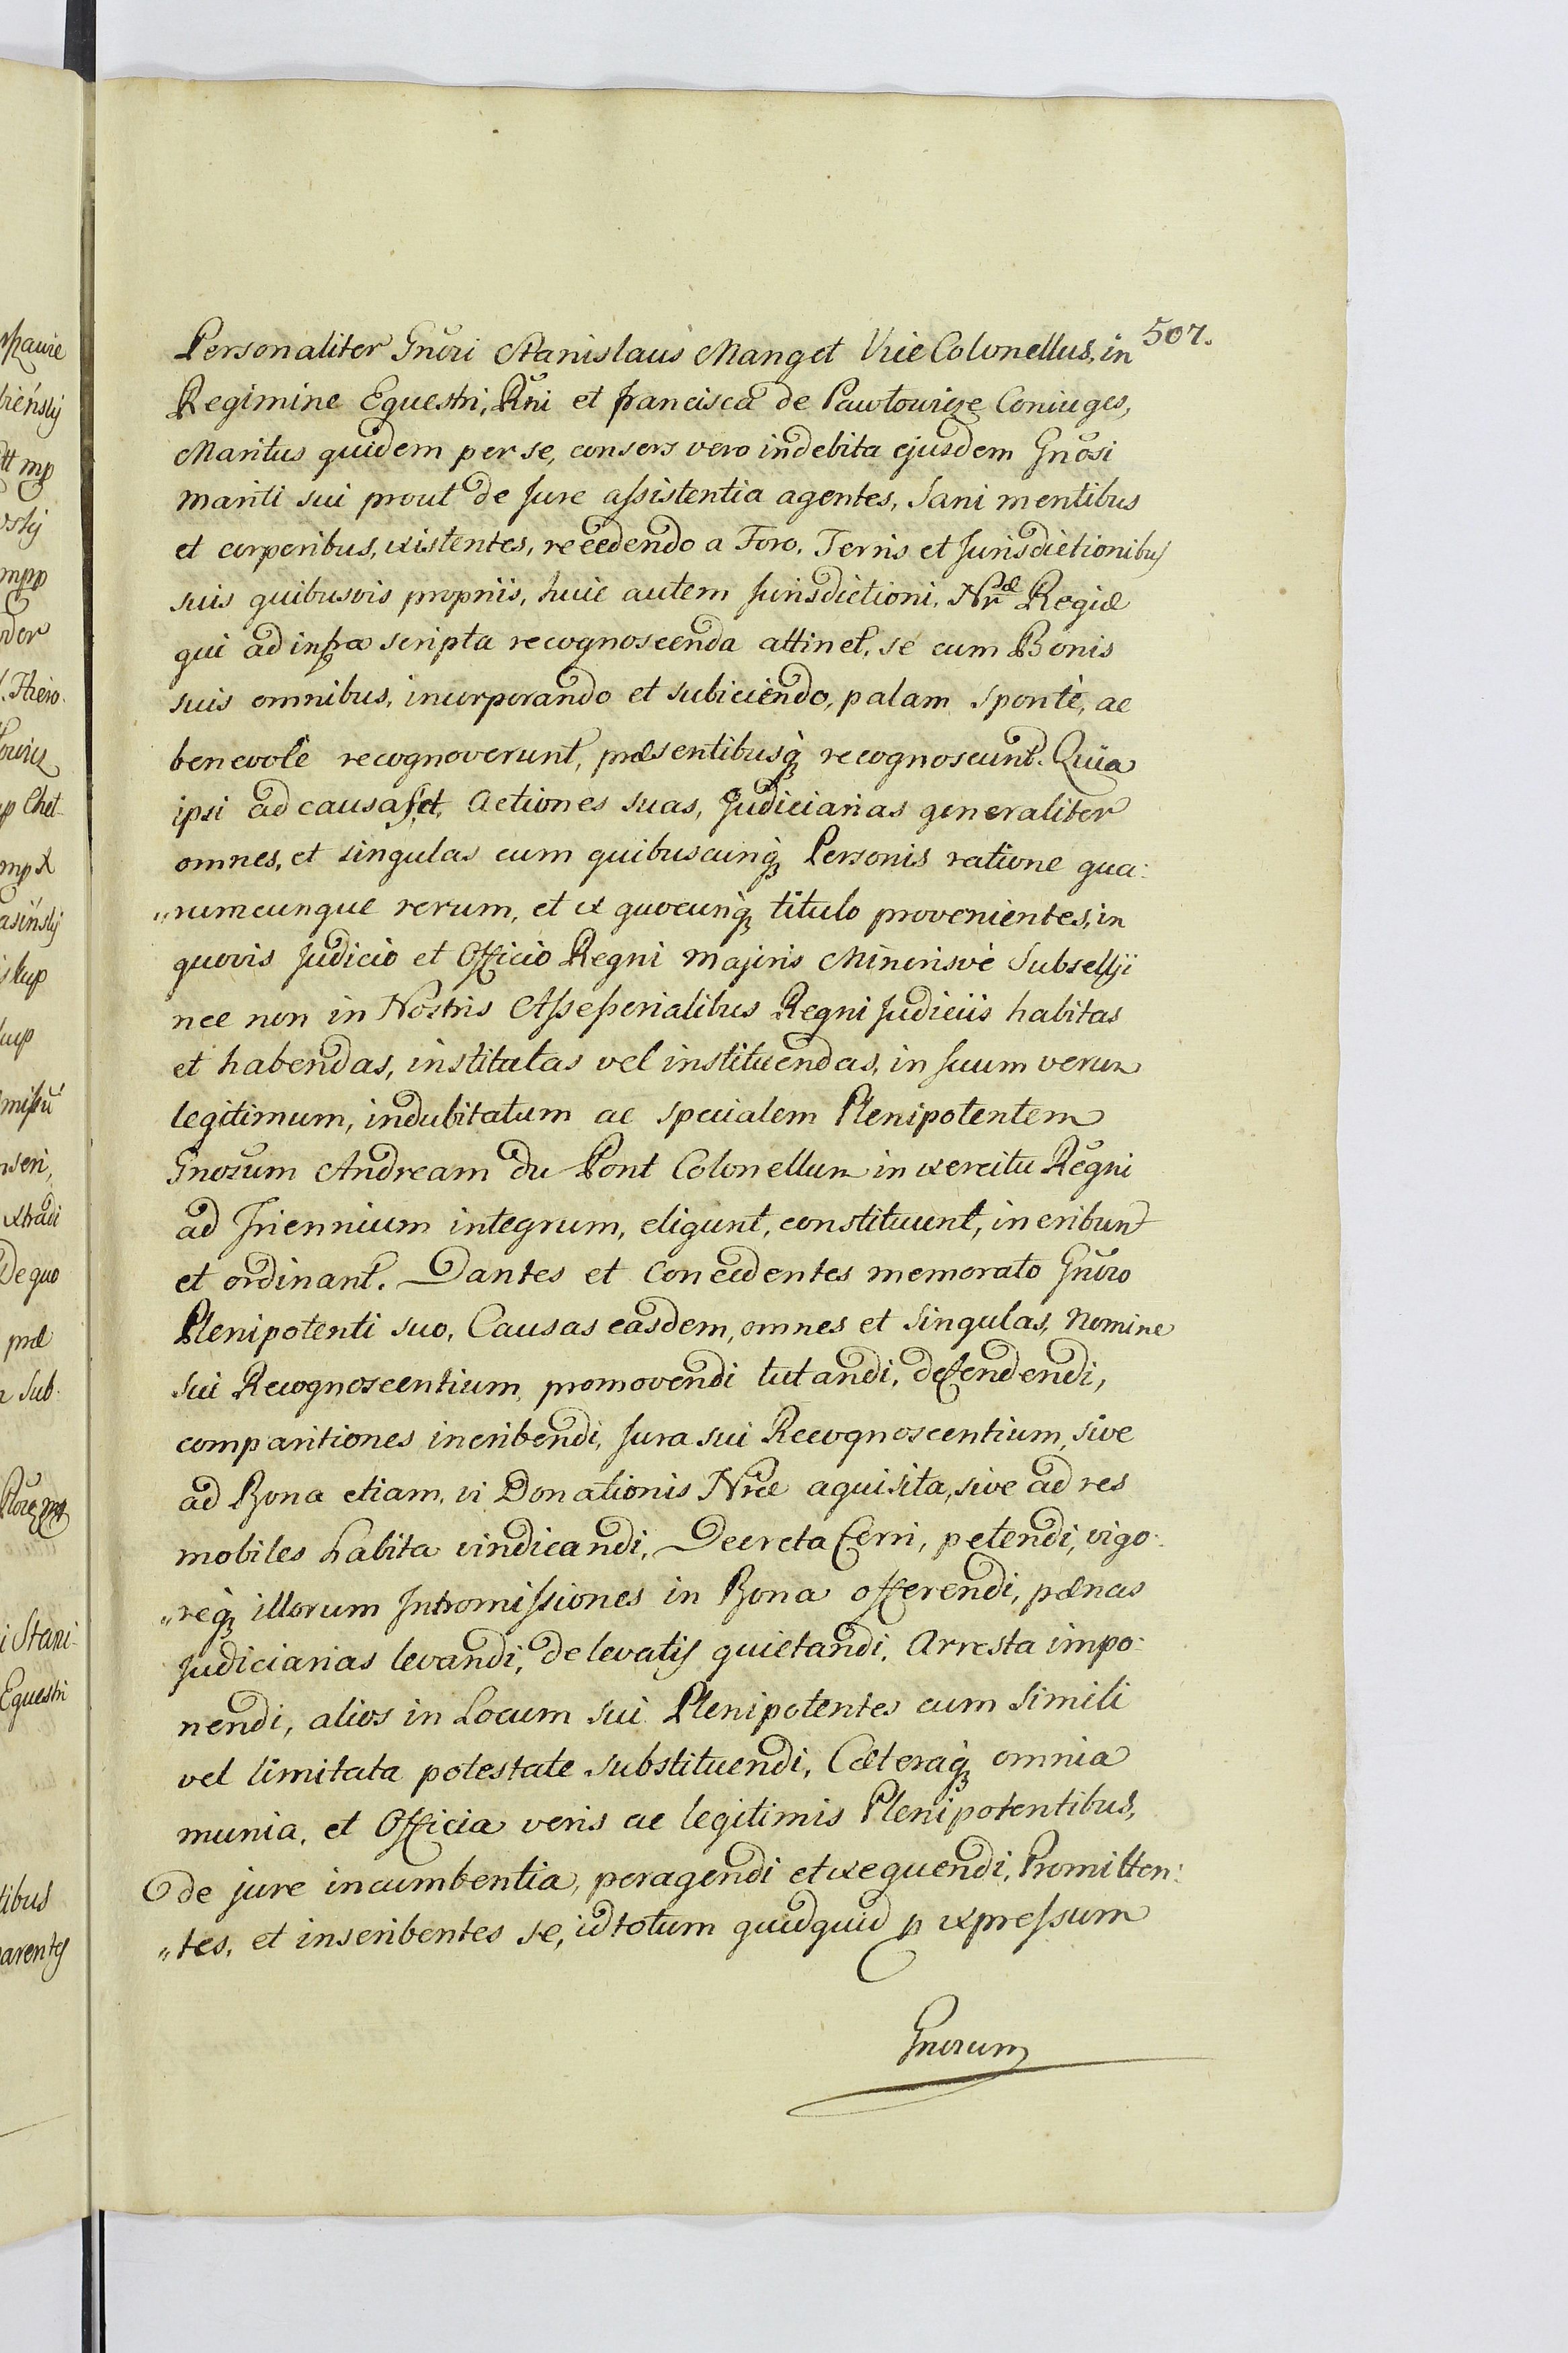 507.
Personaliter Gnõri Stanislaus Manget Vice Colonellus, in
Regimine Equestri, Rñi et francisca de Pawłowicze Coniuges,
Maritus quidem per se, consors vero in debita ejusdem Gnõsi
mariti sui prout de Jure assistentia agentes, Sani mentibus
et corporibus, existentes, recedendo a Foro, Terris et Jurisdictionibus
suis quibusvis propriis, huic autem Jurisdictioni, Nræ Regiæ
qui ad infra scripta recognoscenda attinet, se cum Bonis
suis omnibus, incorporando et subiciendo, palam Spontè, ac
benevolè recognoverunt, præsentibusq̃ recognoscunt. Quia
ipsi ad causas et Actiones suas, Judiciarias generaliter
omnes, et singulas cum quibuscunq̃ Personis ratione qua:
„rumcunque rerum, et ex quocunq̃ titulo provenientes, in
quovis Judicio et Officio Regni majoris Minorisvè Subsellji
nec non in Nostris Assessorialibus Regni Judiciis habitas
et habendas, institutas vel instituendas, in suum verum
legitimum, indubitatum ac specialem Plenipotentem
Gnosum Andream du Pont Colonellum in exercitu Regni
ad Triennium integrum, eligunt, constituunt, incribunt
et ordinant. Dantes et Concedentes memorato Gnõro
Plenipotenti suo, Causas easdem, omnes et Singulas, Nomine
sui Recognoscentium, promovendi tutandi, defendendi,
comparitiones incribendi, Jura sui Recognoscentium, sive
ad Bona etiam, vi Donationis Nræ aquisita, sive ad res
mobiles habita vindicandi, Decreta ferri, petendi, vigo:
„req̃ illorum Intromissiones in Bona offerendi, pænas
Judiciarias levandi, de levatis quietandi, Arresta impo:
nendi, alios in Locum sui Plenipotentes cum Simili
vel limitata potestate substituendi, Cæteraq̃ omnia
munia, et Officia veris ac legitimis Plenipotentibus,
de jure incumbentia, peragendi et exequendi, Promitten:
„tes, et inscribentes se, id totum quidquid p expressum
Gnorum